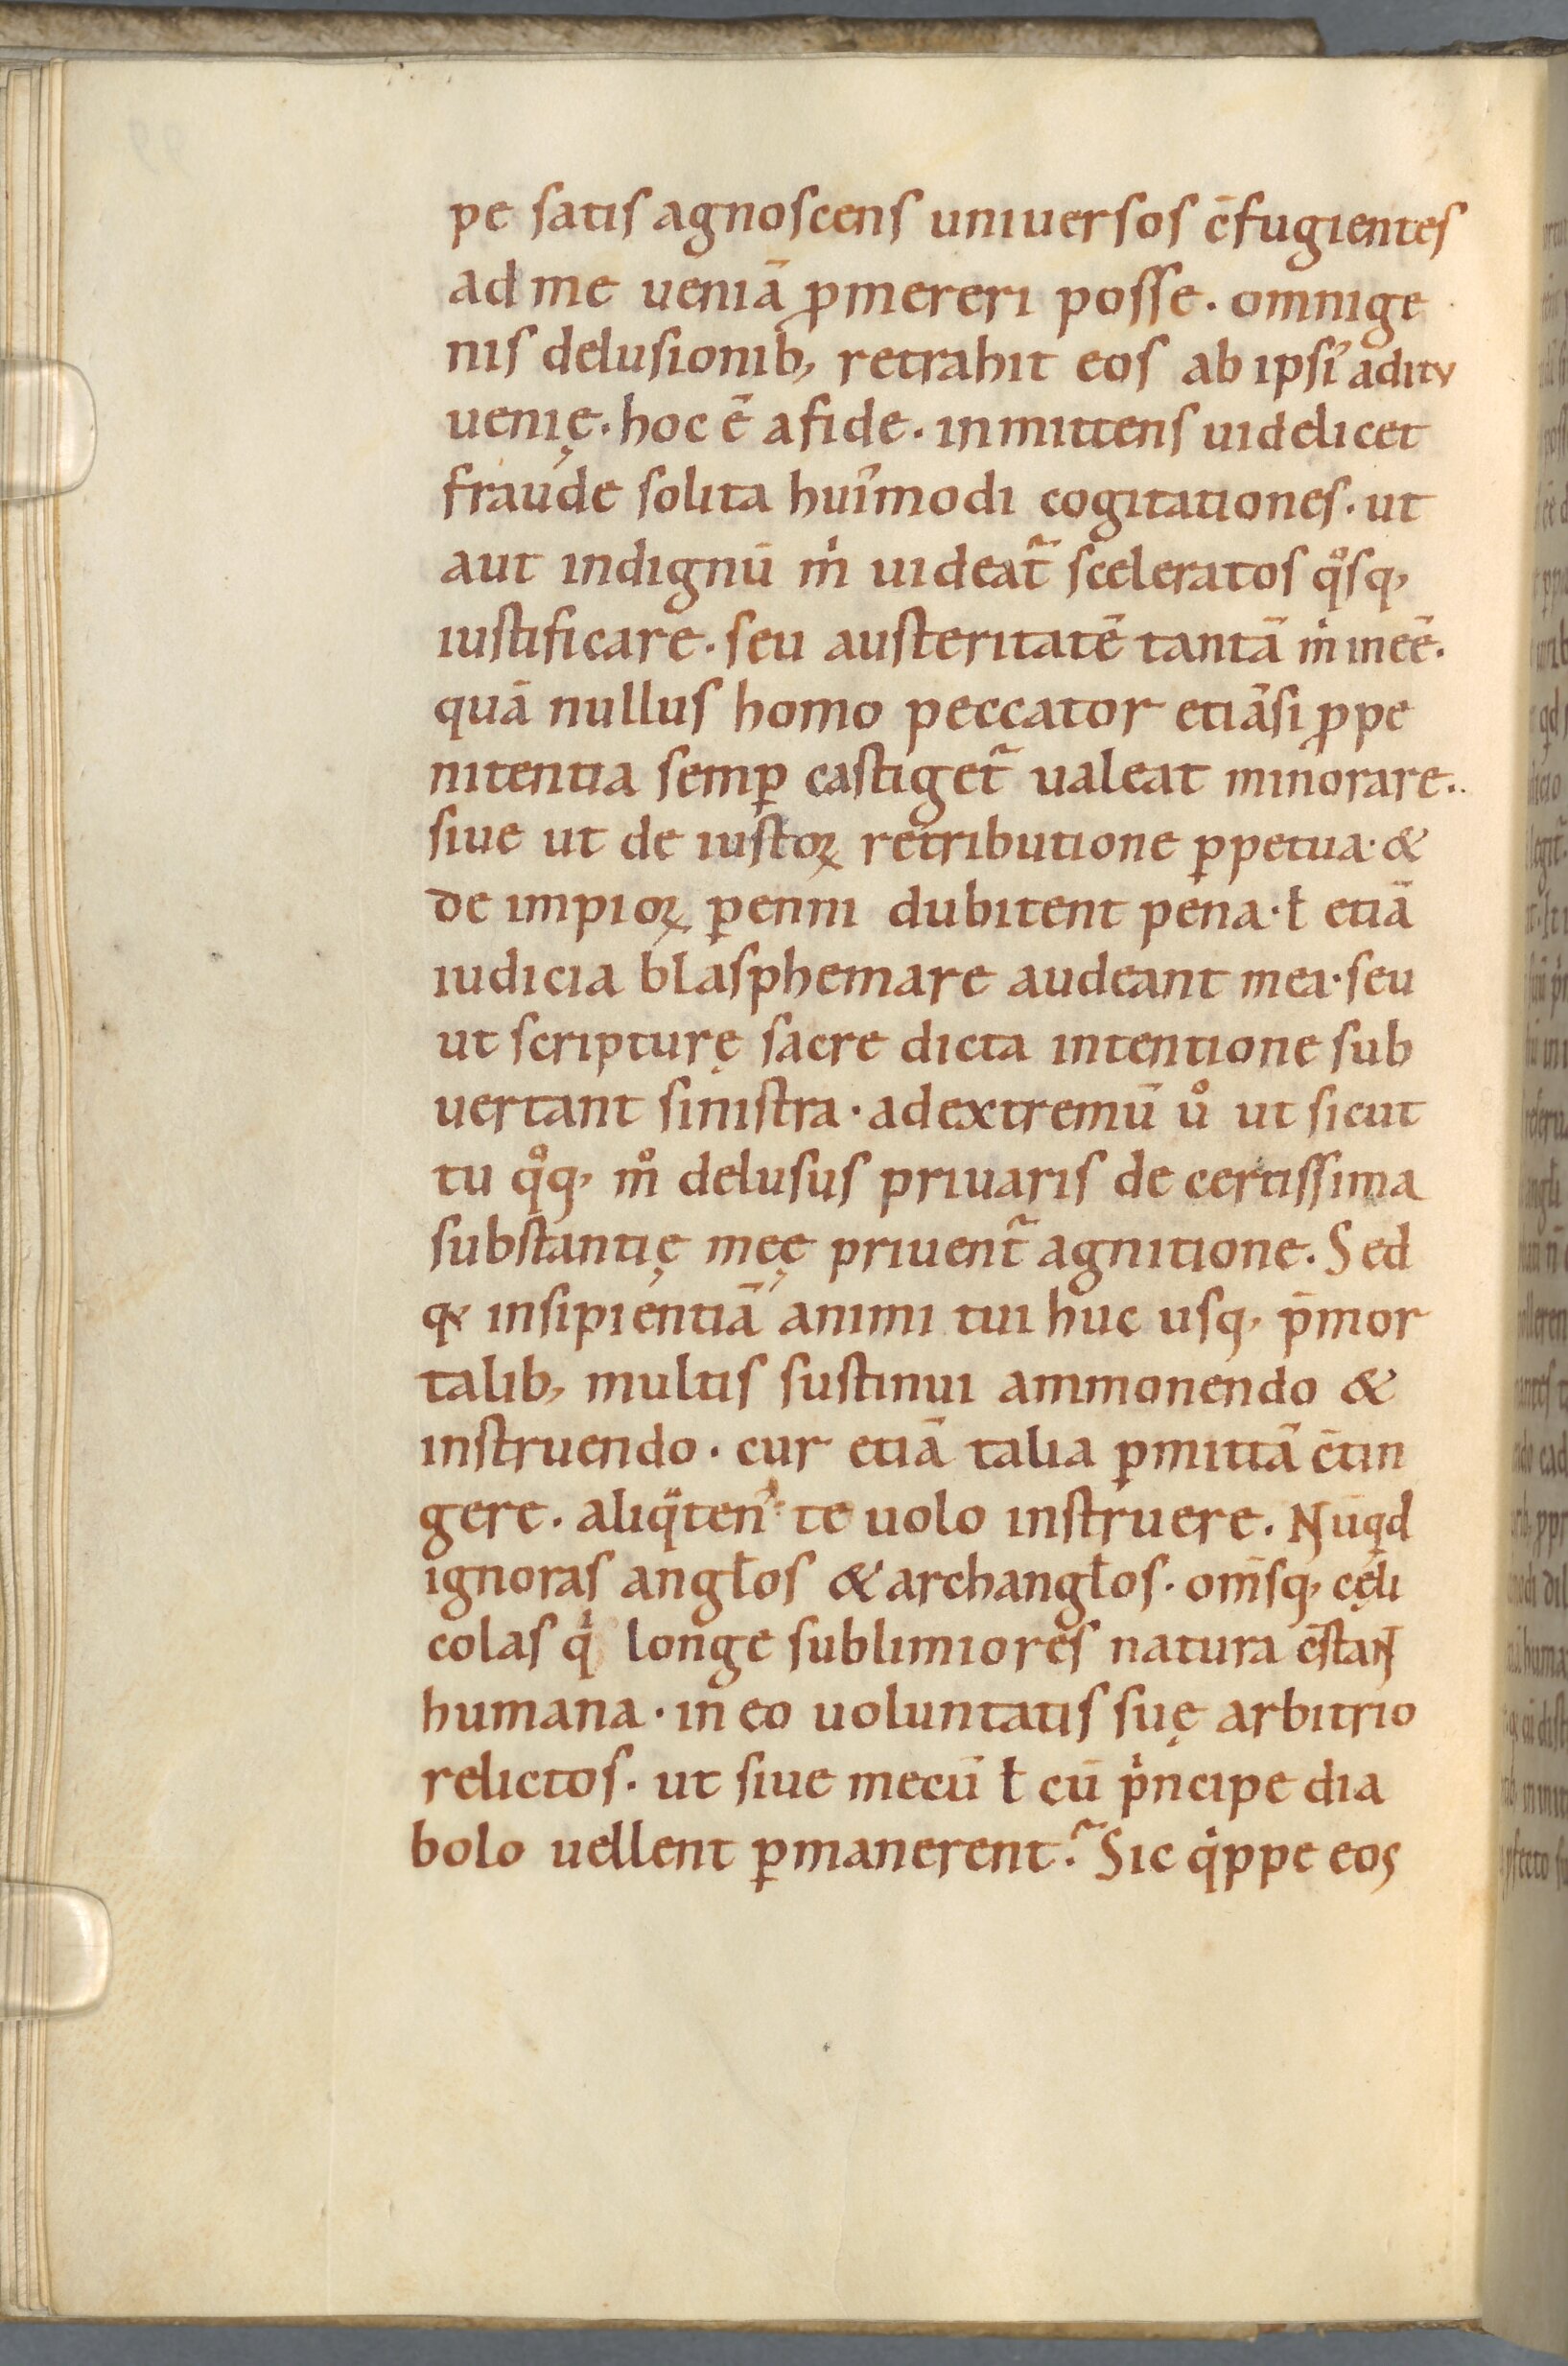 pe satis agnoscens uniuersos c̄fugientes
ad me ueniā ꝓmereri posse · omnige
nis delusionib, retrahit eos ab ipsi᾽ aditu
uenię · hoc ē a fide · inmittens uidelicet
fraude solita hui᾽modi cogitationes · ut
aut indignū mͥ uideat᷑ sceleratos qͦsq,
iustificare · seu austeritatē tantā mͥ ineē ·
quā nullus homo peccator etiāsi ꝓpe
nitentia semꝑ castiget᷑ ualeat minorare ·
siue ut de iustoꝝ retributione ꝑpetua · &
de impioꝝ ꝑenni dubitent pena · ł etiā
iudicia blasphemare audeant mea · seu
ut scripturę sacre dicta intentione sub
uertant sinistra · ad extremū uͦ ut sicut
tu qͦq, mͦ delusus priuaris de certissima
substantię meę priuent᷑ agnitione. Sed
qꝛ insipientiā animi tui huc usq, p̄mor
talib, multis sustinui ammonendo &
instruendo · cur etiā talia ꝑmittā c̄tin
gere · aliqͣten᾽ te uolo instruere. Nūqͥd
ignoras angłos & archangłos · om̄sq, cęli
colas qͥ longe sublimiores natura c̄staN
humana · in eo uoluntatis suę arbitrio
relictos · ut siue mecū ł cū pͥncipe dia
bolo uellent ꝑmanerent? Sic qͥppe eos